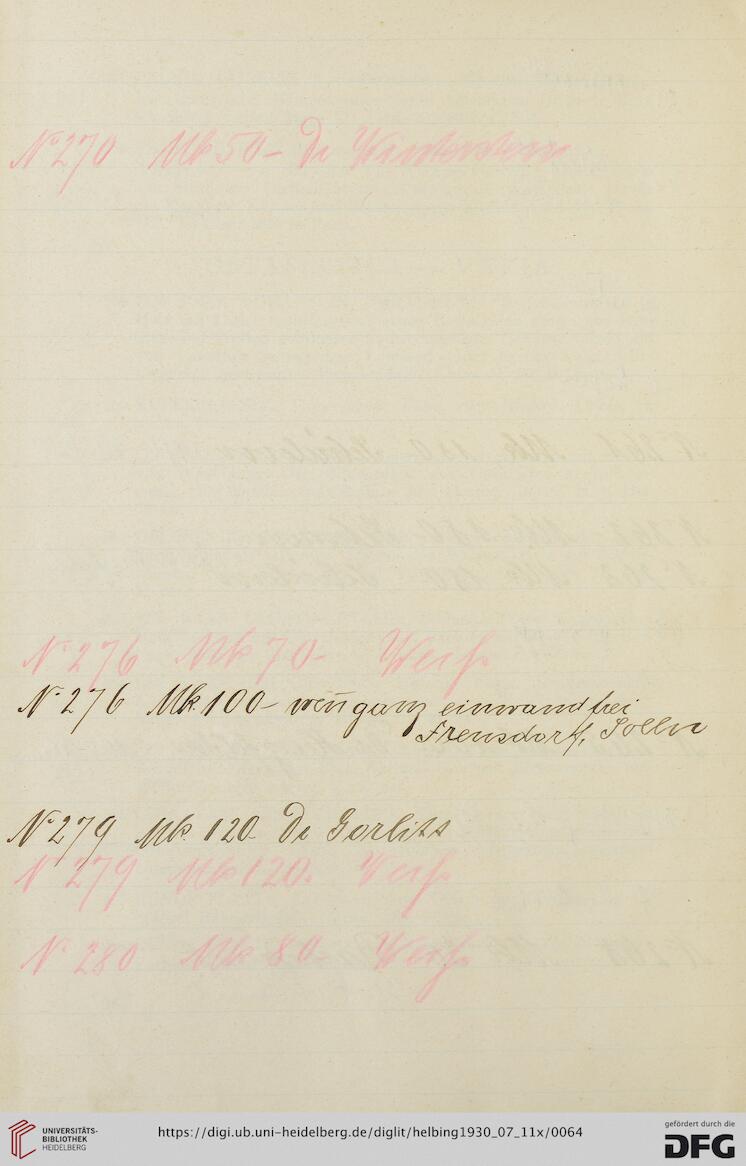 No 270 Mk 50- Dr Winterstern
No 276 Mk 70- Weiß
No 276 Mk. 100- weñ ganz einwandfrei
Frensdorf, Solln
No 279 Mk. 120 Dr Görlitz
No 279 Mk 120. Weiß
No 280 Mk 80- Weiß
UNIVERSITÄTS-
BIBLIOTHEK
HEIDELBERG
https://digi.ub.uni-heidelberg.de/diglit/helbing1930_07_11x/0064
gefördert durch die
DFG